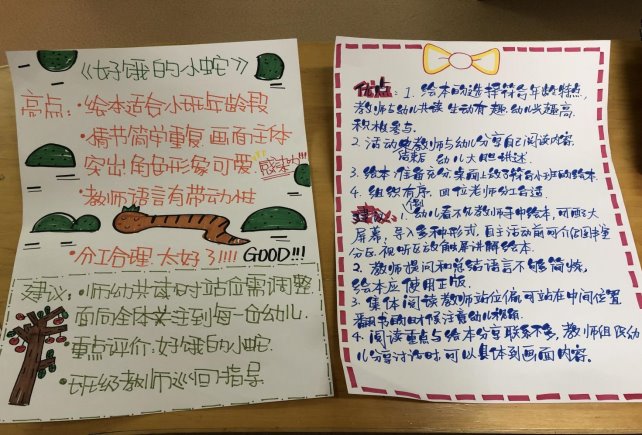 《好饿的小蛇》
亮点:·绘本适合小班年龄段
·情节简单重复.画面主体
突出角色形象可爱.感染力!!
·教师语言有带动性
·分工合理 太好了!!!! GOOD!!!
建议:·师幼共读时站位需调整
面向全体关注到每一位幼儿.
重点评价:好饿的小蛇.
·班级教师巡回指导
优点:1.绘本的选择符合年龄特点,
教师与幼儿共读生动有趣.幼儿兴趣高.
积极参与.
2.活动结束后教师与幼儿分享自己阅读内容.
幼儿大胆讲述.
3.绘本准备充分.桌面上放了符合小班的绘本.
4.组织有序.四位老师分工合适.
建议:1.幼儿看不见教师手中绘本,可用大
屏幕,导入多种形式,自主活动前可介绍
分区.视听区放触屏讲解绘本.
2.教师提问和总结语言不够简炼,
绘本应使用正版.
3.集体阅读教师站位偏.可站在中间位置
翻书的时候注意幼儿视角.
4.阅读重点与绘本分享联系不多,教师组织幼
儿分享讨论时可以具体到画面内容.